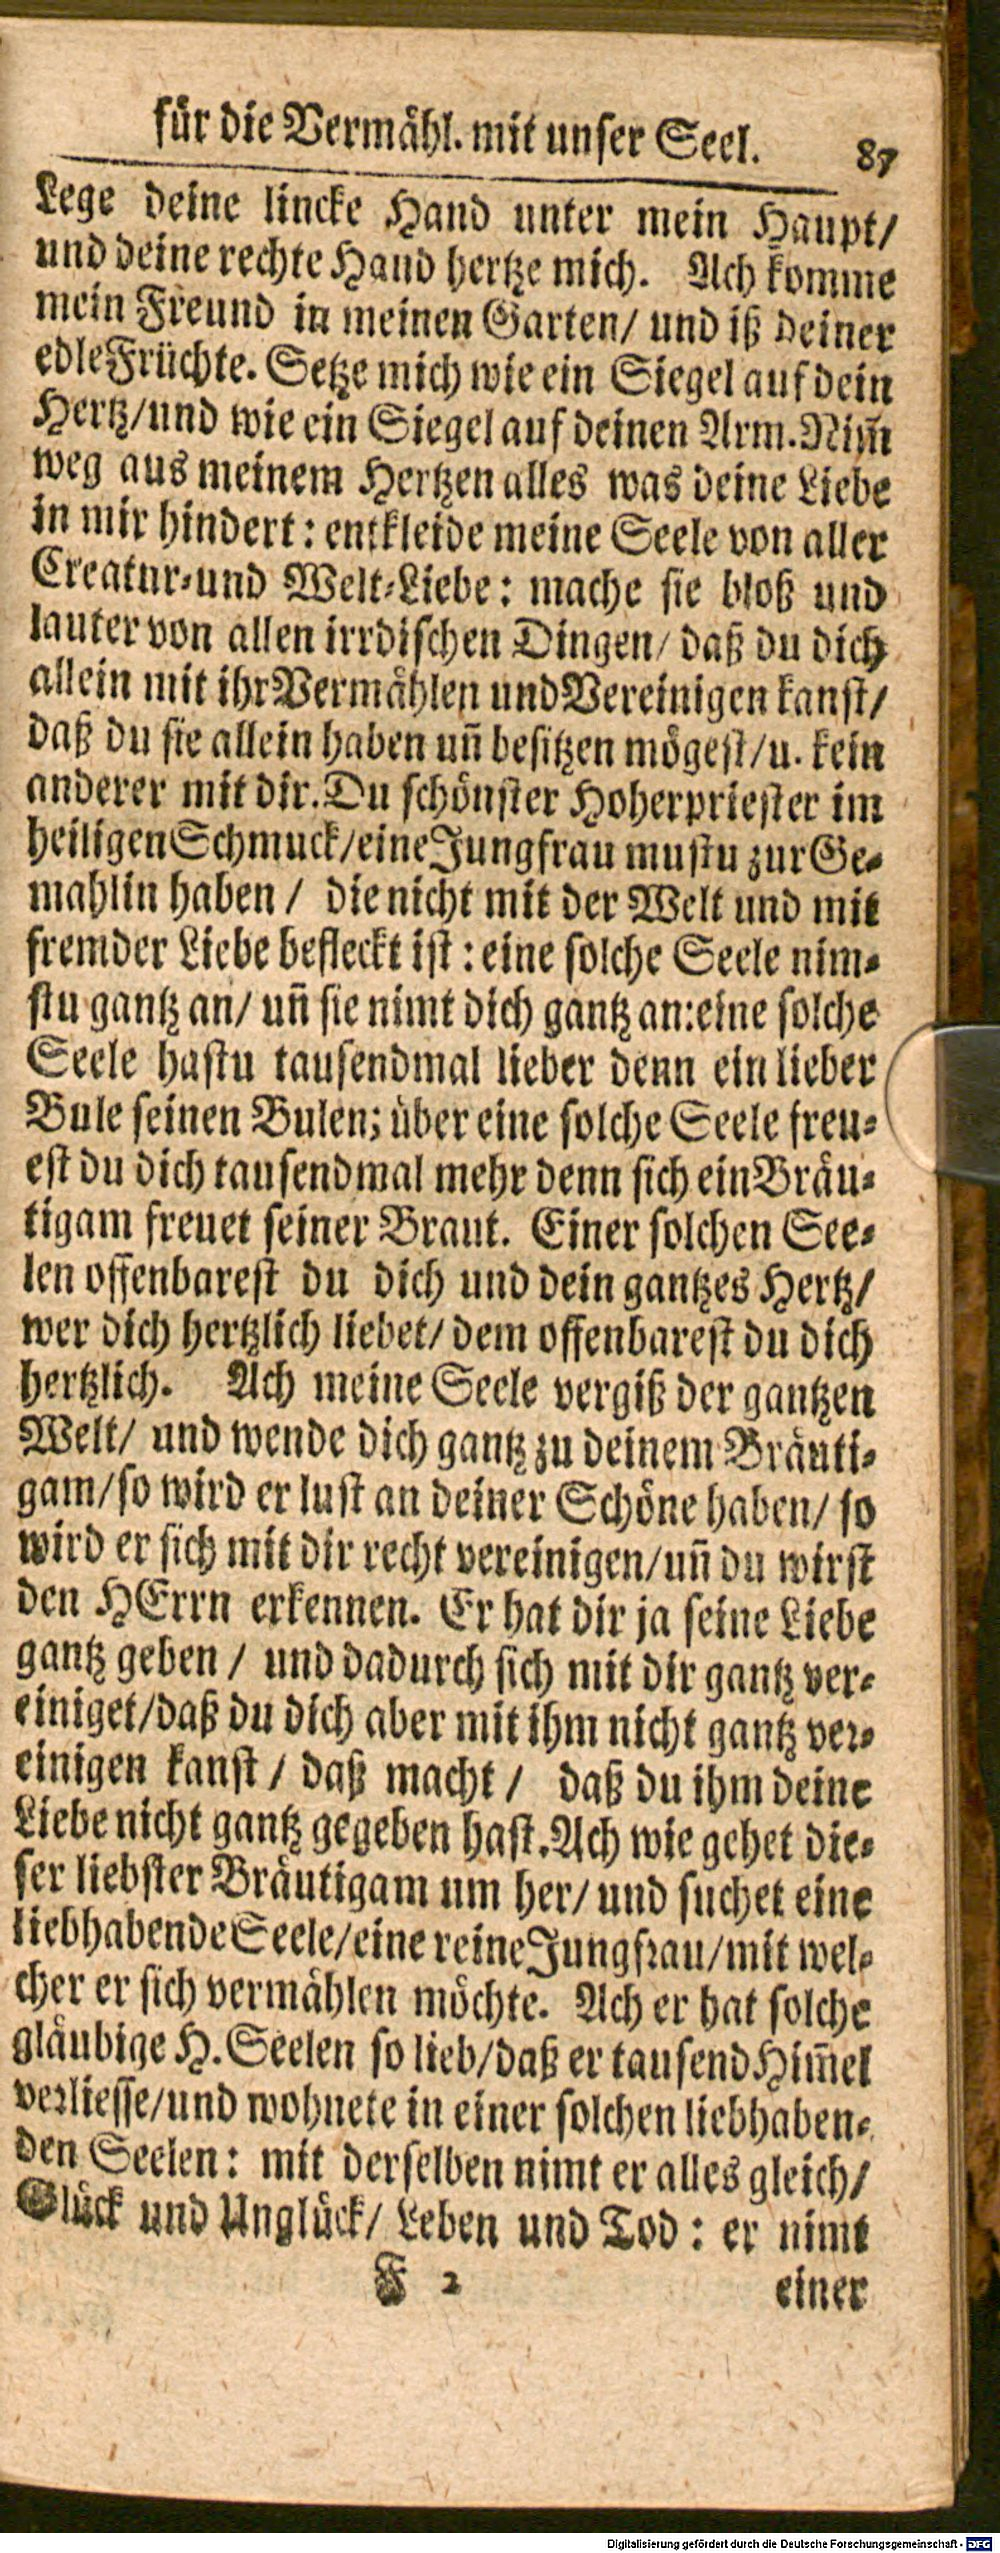 für die Vermähl. mit unser Seel. 87
Lege deine lincke Hand unter mein Haupt/
und deine rechte Hand hertze mich. Ach komme
mein Freund in meinen Garten/ und iß deiner
edle Früchte. Setze mich wie ein Siegel auf dein
Hertz/und wie ein Siegel auf deinen Arm. Nim̃
weg aus meinem Hertzen alles was deine Liebe
in mir hindert: entkleide meine Seele von aller
Creatur-und Welt-Liebe: mache sie bloß und
lauter von allen irrdischen Dingen/ daß du dich
allein mit ihr Vermählen und Vereinigen kanst/
daß du sie allein haben uñ besitzen mögest/u. kein
anderer mit dir. Du schönster Hoherpriester im
heiligen Schmuck/eine Jungfrau mustu zur Ge-
mahlin haben / die nicht mit der Welt und mit
fremder Liebe befleckt ist: eine solche Seele nim-
stu gantz an/ uñ sie nimt dich gantz an:eine solche
Seele hastu tausendmal lieber denn ein lieber
Bule seinen Bulen; über eine solche Seele freu-
est du dich tausendmal mehr denn sich ein Bräu-
tigam freuet seiner Braut. Einer solchen See-
len offenbarest du dich und dein gantzes Hertz/
wer dich hertzlich liebet/ dem offenbarest du dich
hertzlich. Ach meine Seele vergiß der gantzen
Welt/ und wende dich gantz zu deinem Bräuti-
gam/so wird er lust an deiner Schöne haben/ so
wird er sich mit dir recht vereinigen/uñ du wirst
den HErrn erkennen. Er hat dir ja seine Liebe
gantz geben / und dadurch sich mit dir gantz ver-
einiget/daß du dich aber mit ihm nicht gantz ver-
einigen kanst / daß macht / daß du ihm deine
Liebe nicht gantz gegeben hast. Ach wie gehet die-
ser liebster Bräutigam um her/ und suchet eine
liebhabende Seele/eine reine Jungfrau/mit wel-
cher er sich vermählen möchte. Ach er hat solche
gläubige H. Seelen so lieb/daß er tausend Him̃el
verliesse/und wohnete in einer solchen liebhaben-
den Seelen: mit derselben nimt er alles gleich/
Glück und Unglück/ Leben und Tod: er nimt
F 2 einer
Digitalisierung gefördert durch die Deutsche Forschungsgemeinschaft - DFG